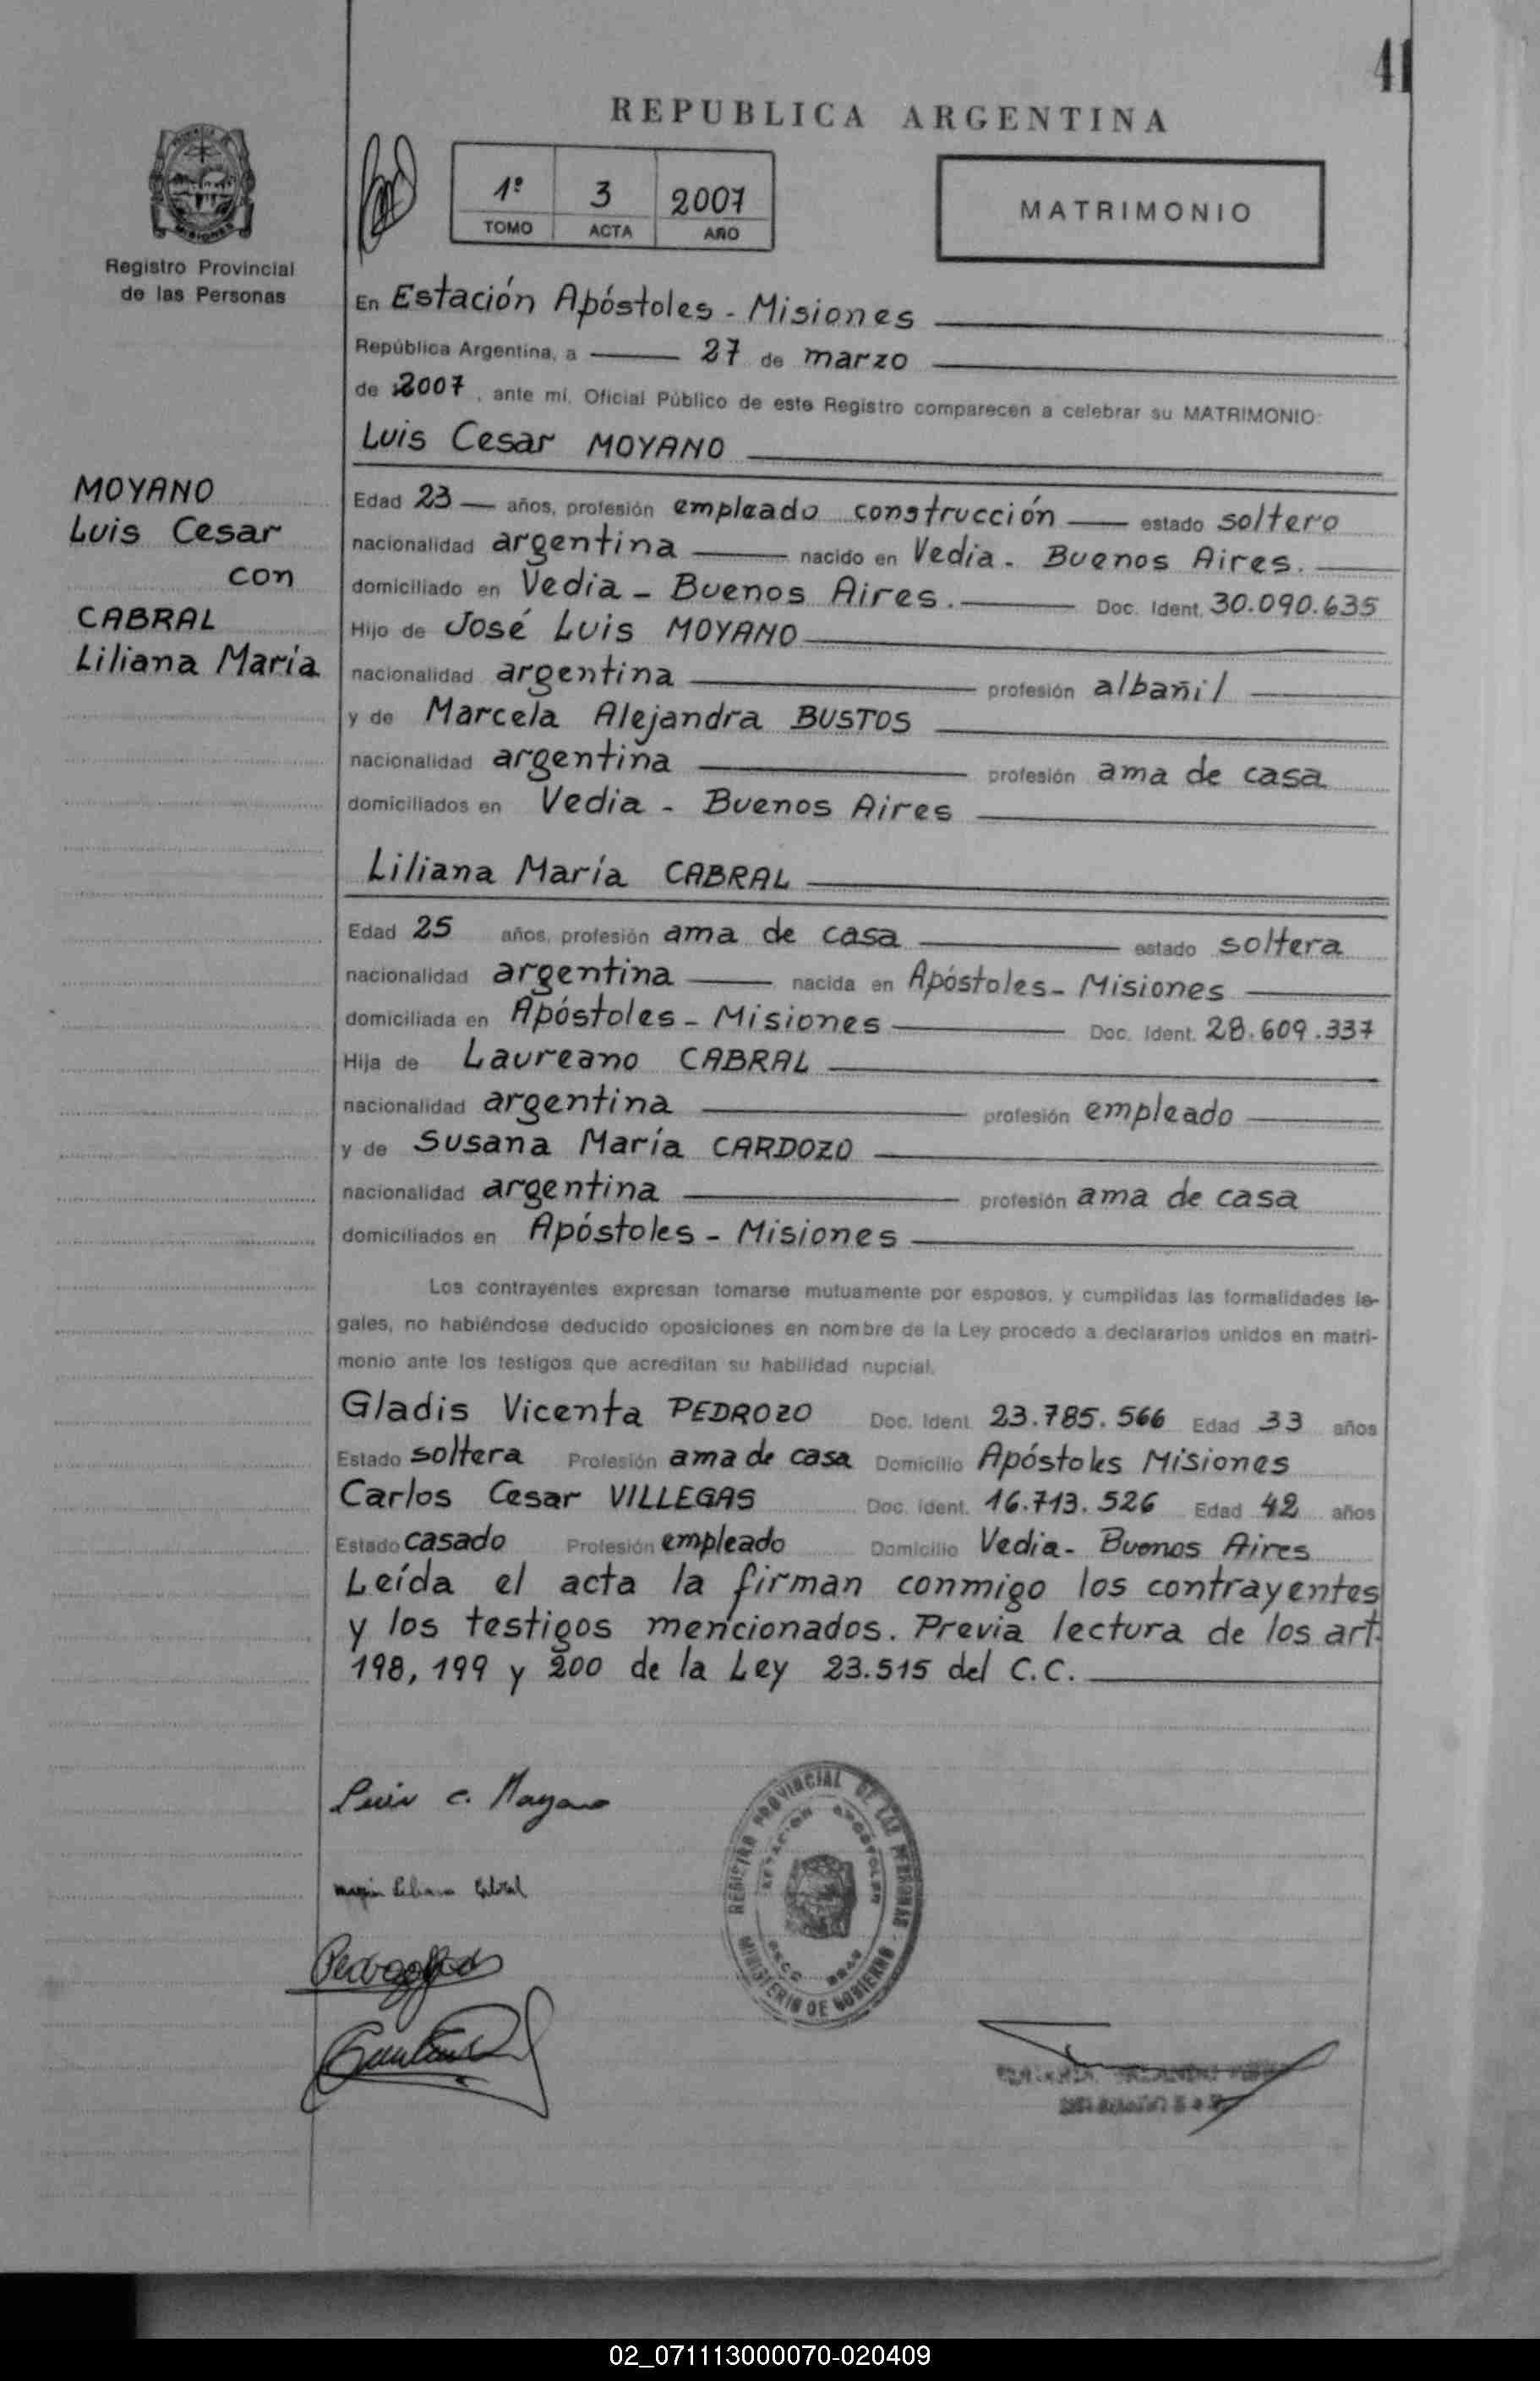 41
REPUBLICA ARGENTINA
1º 3 2007
TOMO ACTA AÑO
MATRIMONIO
Registro Provincial
de las Personas
En Estación Apóstoles - Misiones
República Argentina, a 27 de marzo
de 2007, ante mí, Oficial Público de este Registro comparecen a celebrar su MATRIMONIO:
Luis Cesar MOYANO
MOYANO
Luis Cesar
con
CABRAL
Liliana María
Edad 23 años, profesión empleado construcción estado soltero
nacionalidad argentina nacido en Vedia - Buenos Aires.
domiciliado en Vedia - Buenos Aires. Doc. Ident. 30.090.635
Hijo de José Luis MOYANO
nacionalidad argentina profesión albañil
y de Marcela Alejandra BUSTOS
nacionalidad argentina profesión ama de casa
domiciliados en Vedia - Buenos Aires
Liliana María CABRAL
Edad 25 años, profesión ama de casa estado soltera
nacionalidad argentina nacida en Apóstoles - Misiones
domiciliada en Apóstoles - Misiones Doc. Ident. 28.609.337
Hija de Laureano CABRAL
nacionalidad argentina profesión empleado
y de Susana María CARDOZO
nacionalidad argentina profesión ama de casa
domiciliados en Apóstoles - Misiones
Los contrayentes expresan tomarse mutuamente por esposos, y cumplidas las formalidades le-
gales, no habiéndose deducido oposiciones en nombre de la Ley procedo a declararlos unidos en matri-
monio ante los testigos que acreditan su habilidad nupcial.
Gladis Vicenta PEDROZO Doc. Ident. 23.785.566 Edad 33 años
Estado soltera Profesión ama de casa Domicilio Apóstoles Misiones
Carlos Cesar VILLEGAS Doc. Ident. 16.713.526 Edad 42 años
Estado casado Profesión empleado Domicilio Vedia - Buenos Aires
Leída el acta la firman conmigo los contrayentes
y los testigos mencionados. Previa lectura de los art.
198, 199 y 200 de la Ley 23.515 del C.C.
Luis C. Moyano
Liliana Cabral
REGISTRO PROVINCIAL DE LAS PERSONAS
ESTACION APOSTOLES
MINISTERIO DE GOBIERNO
02_071113000070-020409